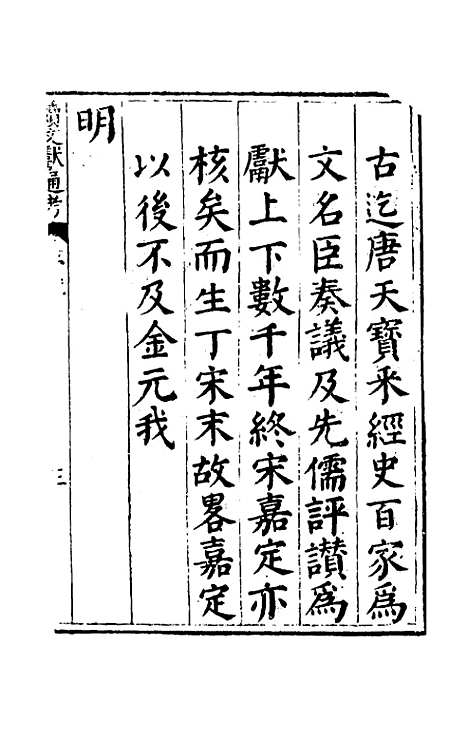 古迄唐天寶釆經史百家爲
文名臣奏議及先儒評讃爲
獻上下數千年終宋嘉定亦
核矣而生丁宋末故畧嘉定
以後不及金元我
明
文獻通考
三